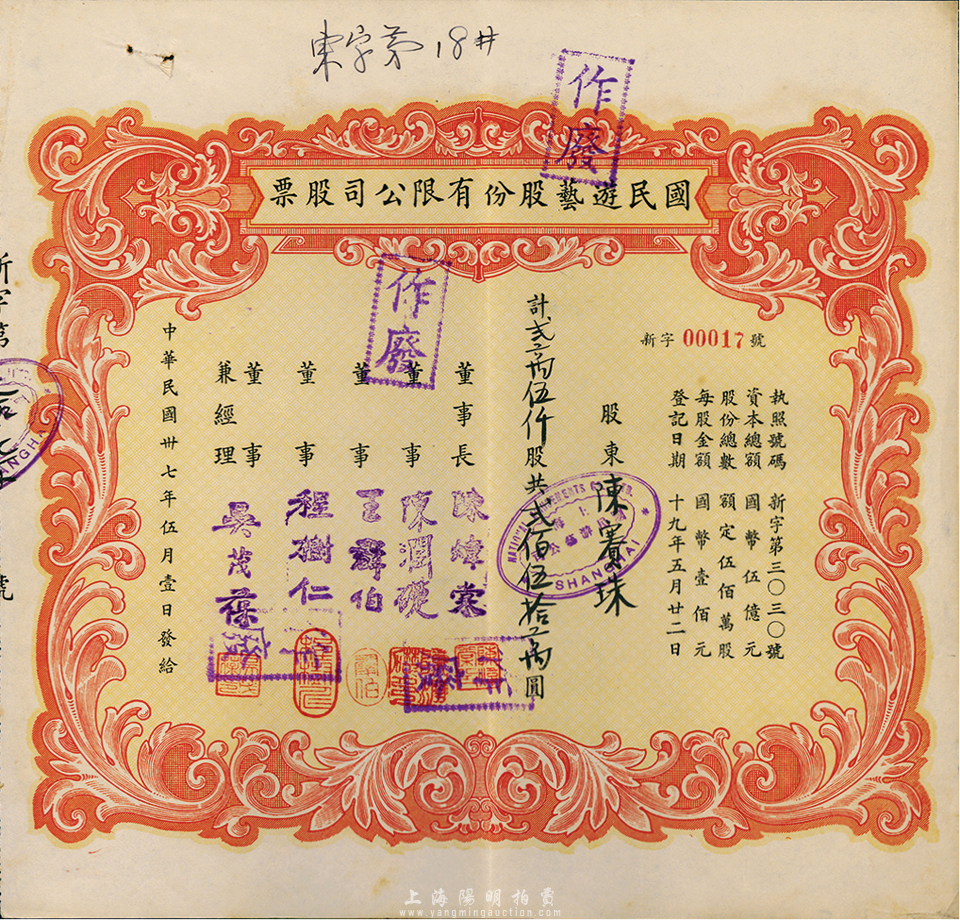 東字第18#
作廢
國民遊藝股份有限公司股票
新字 00017 號
執照號碼 新字第三〇三〇號
資本總額 國幣伍億元
股份總數 額定伍佰萬股
每股金額 國幣壹佰元
登記日期 十九年五月廿二日
股東 陳審珠
計貳萬伍仟股共貳佰伍拾萬圓
SHANGHAI
作廢
董事長
董事 陳潤礎
董事 王群伯
董事 程樹仁
董事兼經理 吳茂葆
中華民國卅七年伍月壹日發給
新字第
號
上海陽明拍賣
www.yangmingauction.com